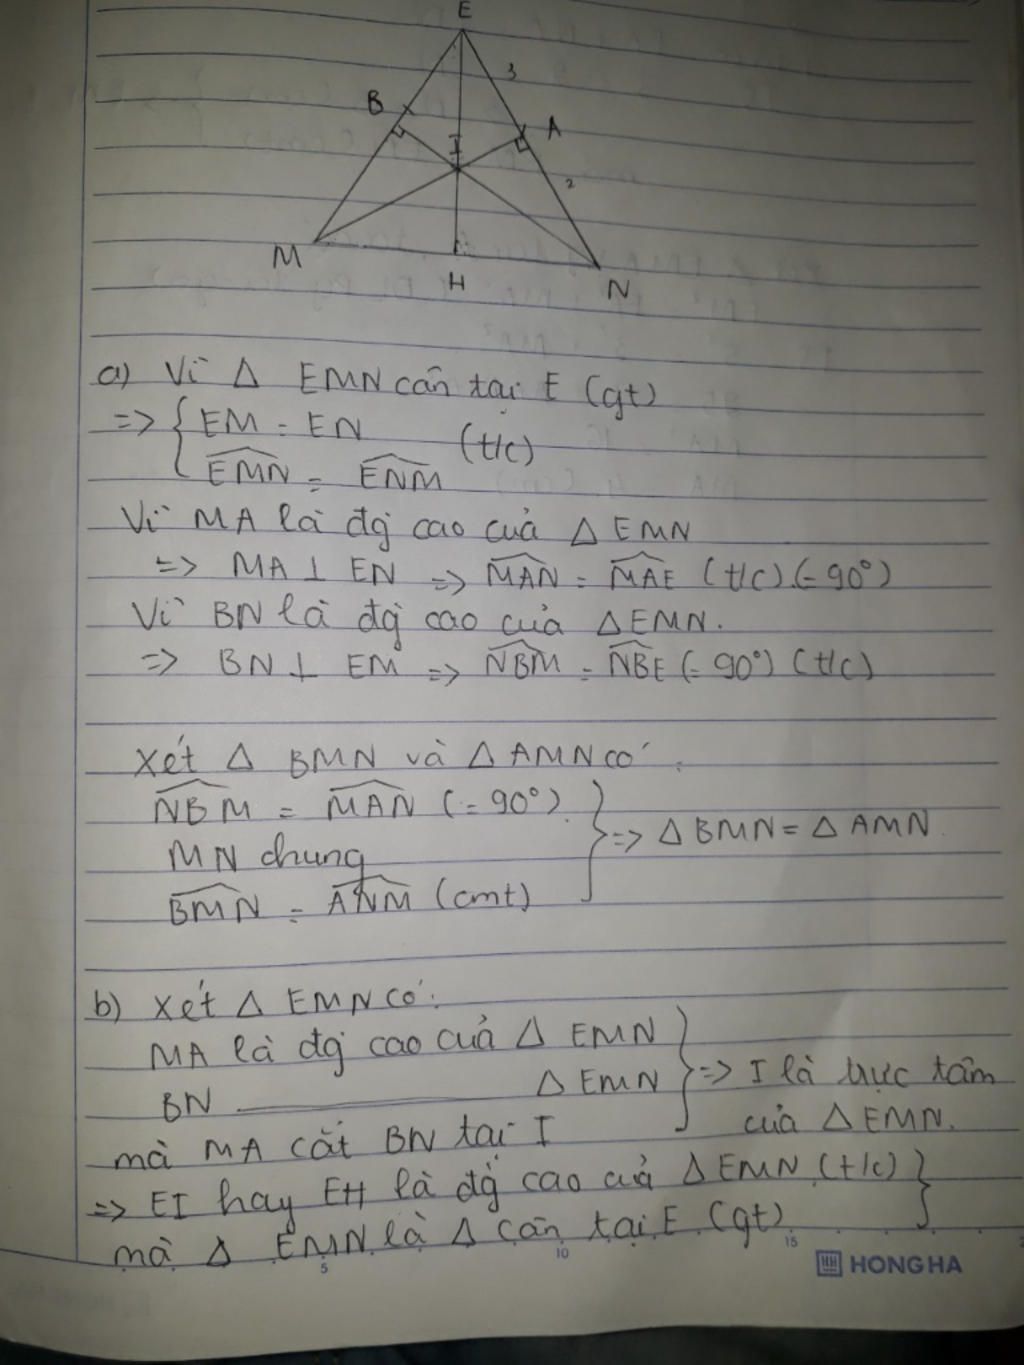 E
3
B
A
I
2
M
H
N
a) Vì Δ EMN cân tại E (gt)
=> { EM = EN (t/c)
EMN = ENM
Vì MA là đg cao của Δ EMN
=> MA ⊥ EN => MAN = MAE (t/c) (= 90°)
Vì BN là đg cao của Δ EMN.
=> BN ⊥ EM => NBM = NBE (= 90°) (t/c)
Xét Δ BMN và Δ AMN có :
NBM = MAN (= 90°)
MN chung } => Δ BMN = Δ AMN.
BMN = ANM (cmt)
b) Xét Δ EMN có :
MA là đg cao của Δ EMN
BN ———— Δ EMN } => I là trực tâm
mà MA cắt BN tại I của Δ EMN.
=> EI hay EH là đg cao của Δ EMN (t/c) }
mà Δ EMN là Δ cân tại E (gt)
5 10 15
HH HONG HA